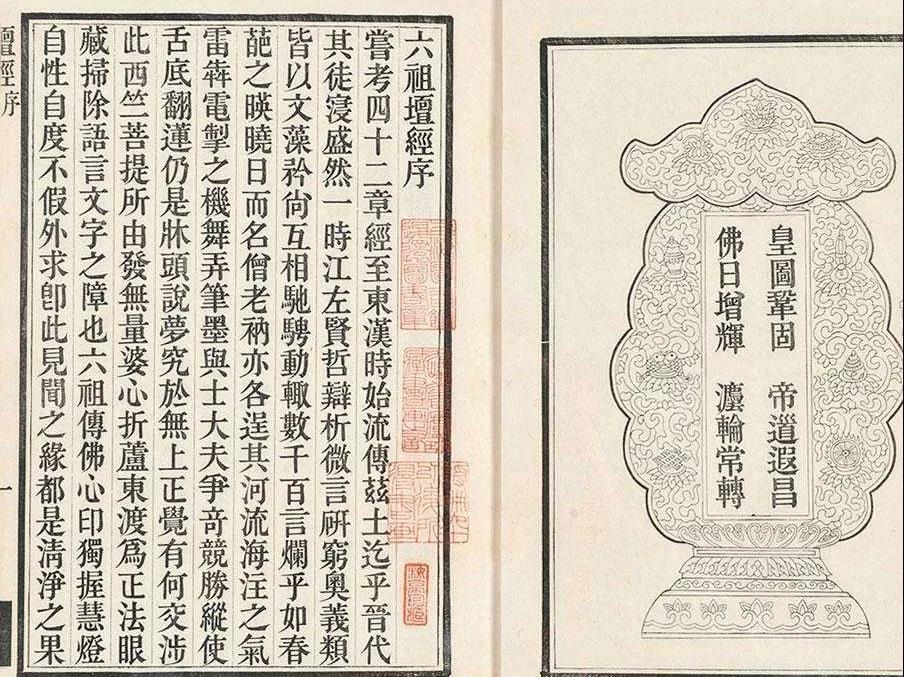 皇圖鞏固　帝道遐昌
佛日增輝　灋輪常轉
六祖壇經序
嘗考四十二章經至東漢時始流傳茲土迄乎晉代
其徒寖盛然一時江左賢哲辯析微言硏窮奧義類
皆以文藻矜尙互相馳騁動輒數千百言爛乎如春
葩之暎曉日而名僧老衲亦各逞其河流海注之氣
雷犇電掣之機舞弄筆墨與士大夫爭竒競勝縱使
舌底翻蓮仍是牀頭說夢究於無上正覺有何交涉
此西竺菩提所由發無量婆心折蘆東渡爲正法眼
藏掃除語言文字之障也六祖傳佛心印獨握慧燈
自性自度不假外求卽此見聞之緣都是淸淨之果
壇經序
一